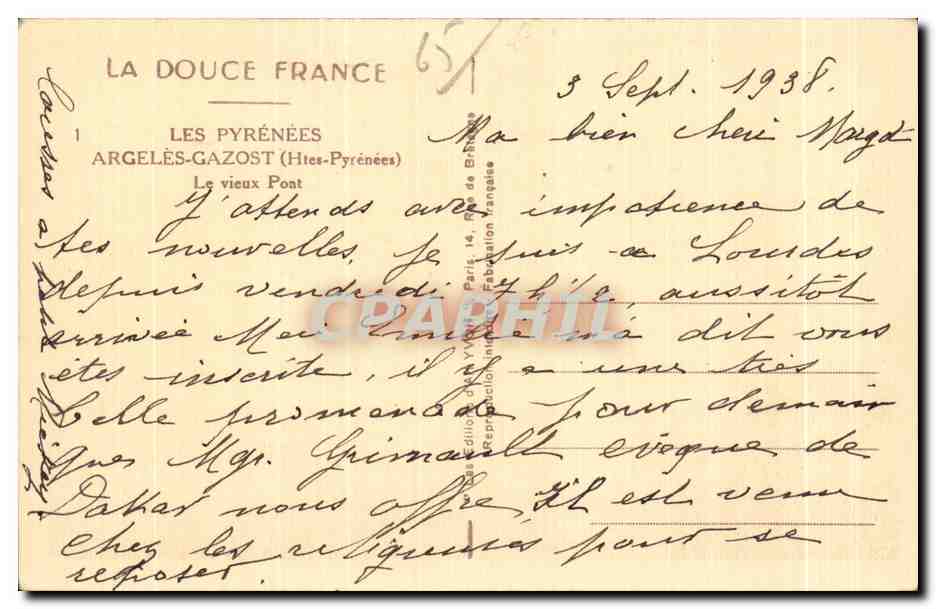 65
LA DOUCE FRANCE
3 Sept. 1938.
1
LES PYRÉNÉES
Ma bien cheri Margot
ARGELÈS-GAZOST (Htes-Pyrénées)
Le vieux Pont
J'attends avec impatience de
tes nouvelles, je suis a Lourdes
depuis vendredi 7h1/2, aussitôt
arrivée Mei Emilie m'a dit vous
êtes inscrite, il y a une très
belle promenade pour demain
que Mgr. Grimault evêque de
Dakar nous offre Il est venu
chez les religieuses pour se
reposer.
Caresses a
Les Editions d'Art YVON, Paris, 14, Rue de Bretagne
Reproduction interdite Fabrication française
CPAPHIL